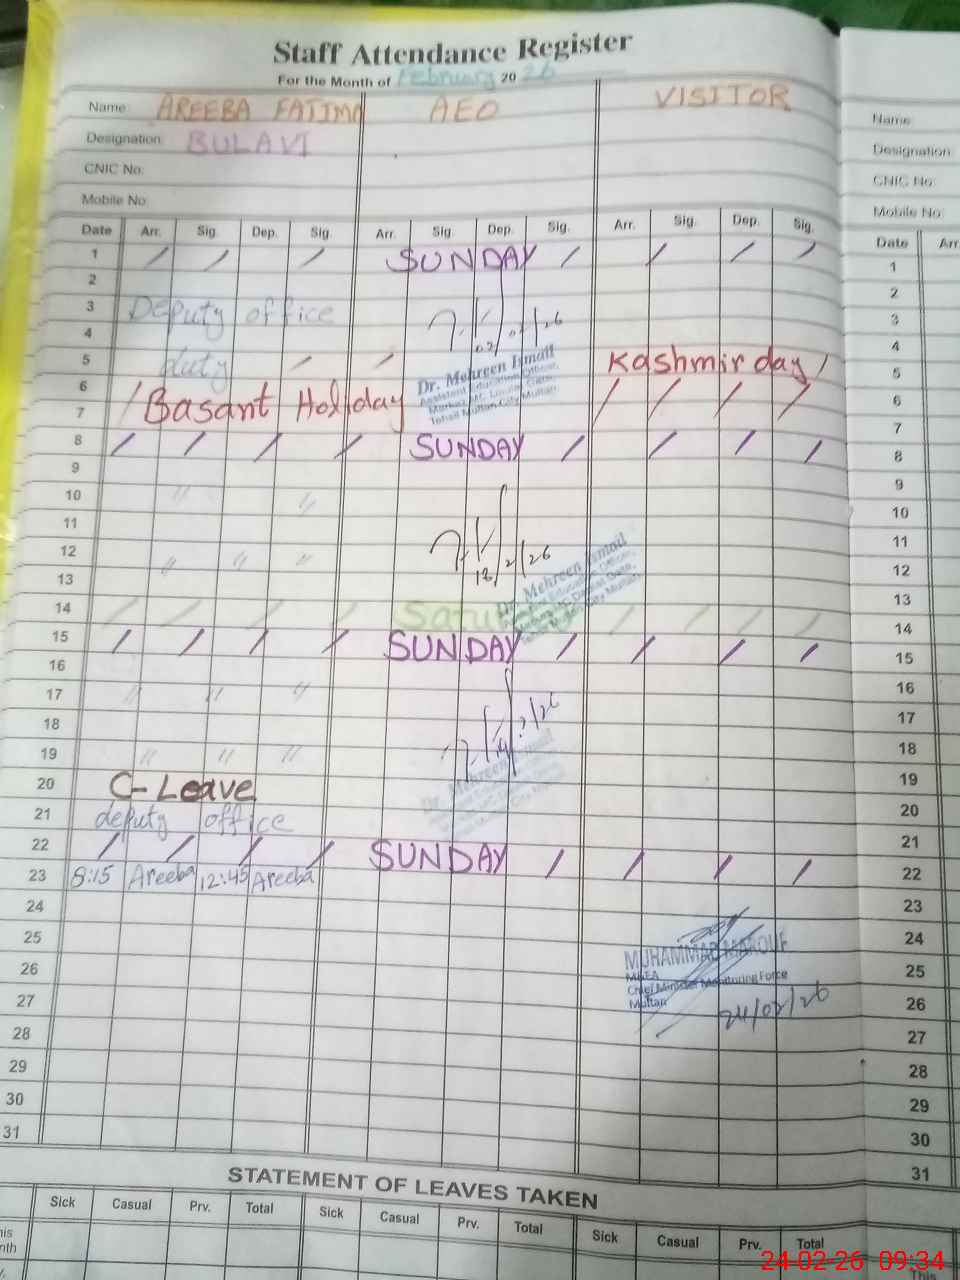 Staff Attendance Register
For the Month of February 2026
Name: AREEBA FATIMA AEO VISITOR
Designation: BULAVI
CNIC No:
Mobile No:
Date Arr. Sig. Dep. Sig. Arr. Sig. Dep. Sig. Arr. Sig. Dep. Sig.
1 / / / SUNDAY / / / /
2
3 Deputy office
02/02/26
4
5 duty / / Kashmir day /
Dr. Mehreen Ismail
Assistant Education Officer,
Tehsil Multan City Multan
6 / Basant Holiday / / / /
7
8 / / / / SUNDAY / / / /
9
10 " "
11
12 " " "
/2/26
Dr. Mehreen Ismail
13
14 / / / / / / / /
15 / / / / SUNDAY / / / /
16
17 " " "
18
19 " " "
Dr. Mehreen Ismail
20 C-Leave
21 deputy office
22 / / / / SUNDAY / / / /
23 8:15 Areeba 12:45 Areeba
24
25
MUHAMMAD MAROUF
MEA
Chief Minister Monitoring Force
Multan
24/02/26
26
27
28
29
30
31
STATEMENT OF LEAVES TAKEN
Sick Casual Prv. Total Sick Casual Prv. Total Sick Casual Prv. Total
This
Name:
Designation:
CNIC No:
Mobile No:
Date Arr.
1
2
3
4
5
6
7
8
9
10
11
12
13
14
15
16
17
18
19
20
21
22
23
24
25
26
27
28
29
30
31
24-02-26 09:34